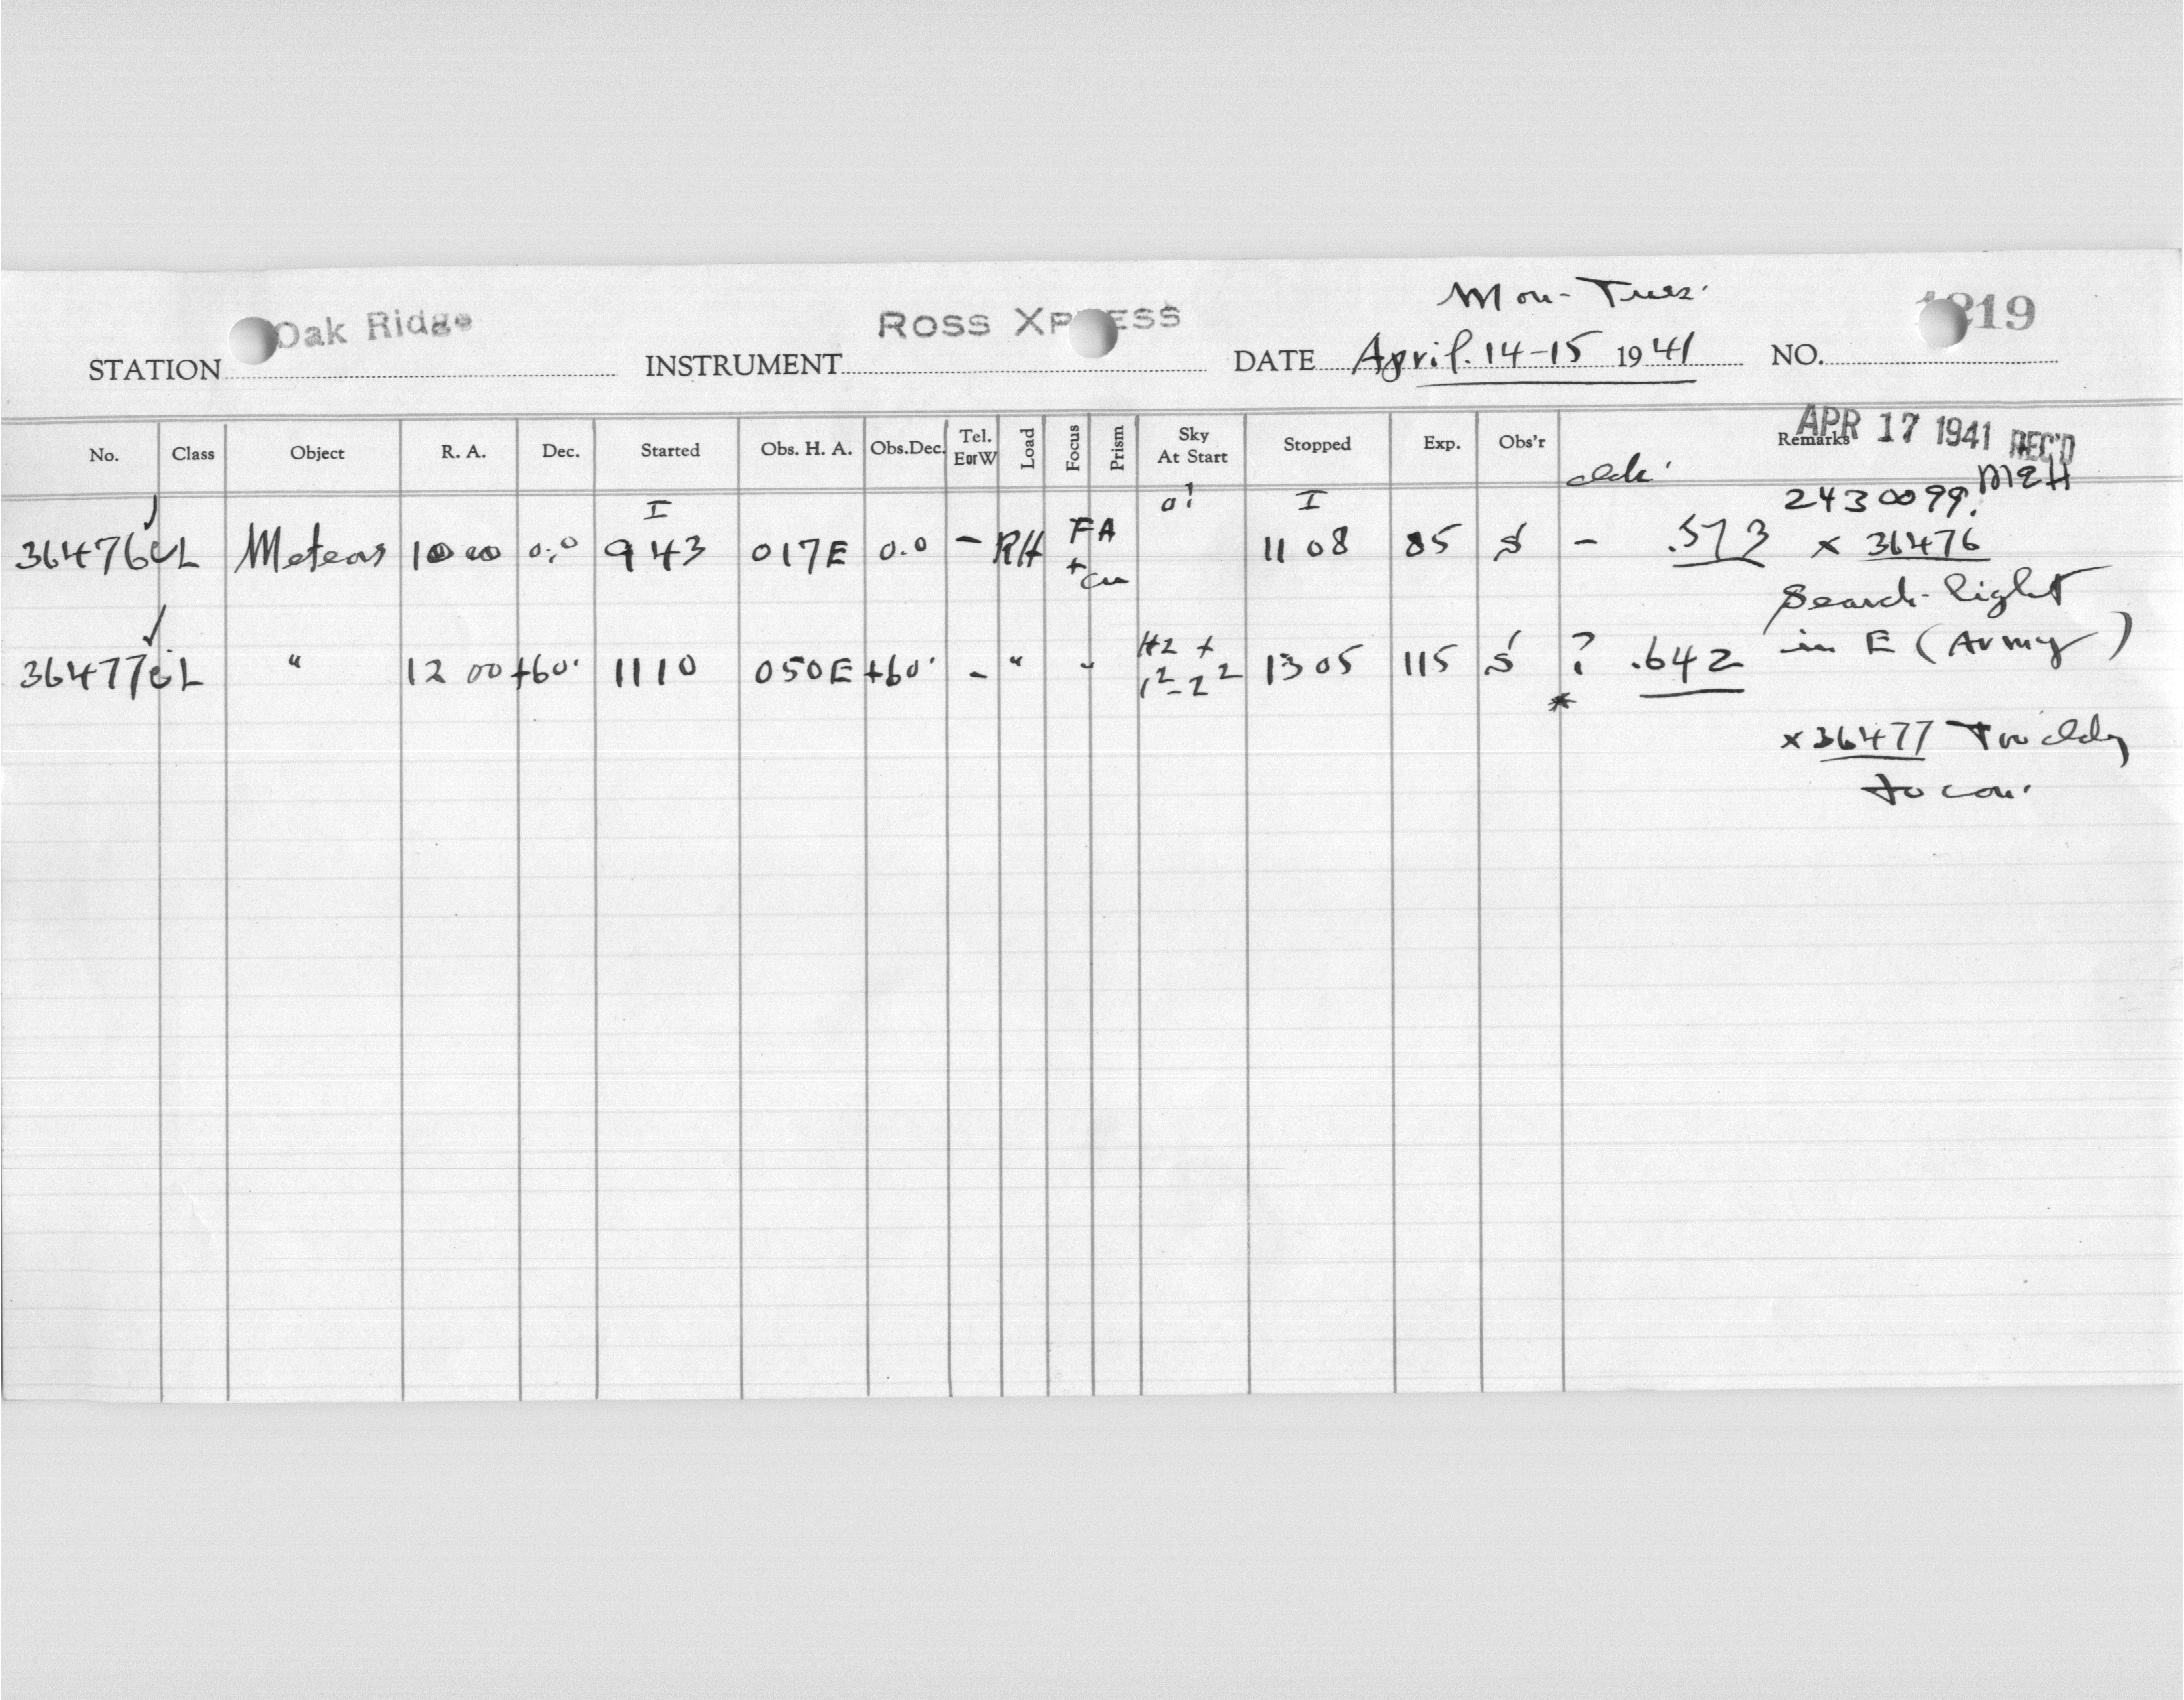 Mon-Tues.
STATION Oak Ridge INSTRUMENT ROSS XPRESS DATE April. 14-15 1941 NO. 1219
APR 17 1941 REC'D
No. Class Object R. A. Dec. Started Obs. H. A. Obs.Dec. Tel. EorW Load Focus Prism Sky At Start Stopped Exp. Obs'r Remarks
MEH
I I 2430099.
36476 L Meteors 10 00 0.0 9 43 017E 0.0 - RH FA + cu 11 08 85 S - .573 x 36476
Search-light
in E (Army)
36477 L " 12 00 +60. 11 10 050E +60. - " " H2 + 1²-2² 13 05 115 S ? .642
*
x 36477 Too cldy
to con.